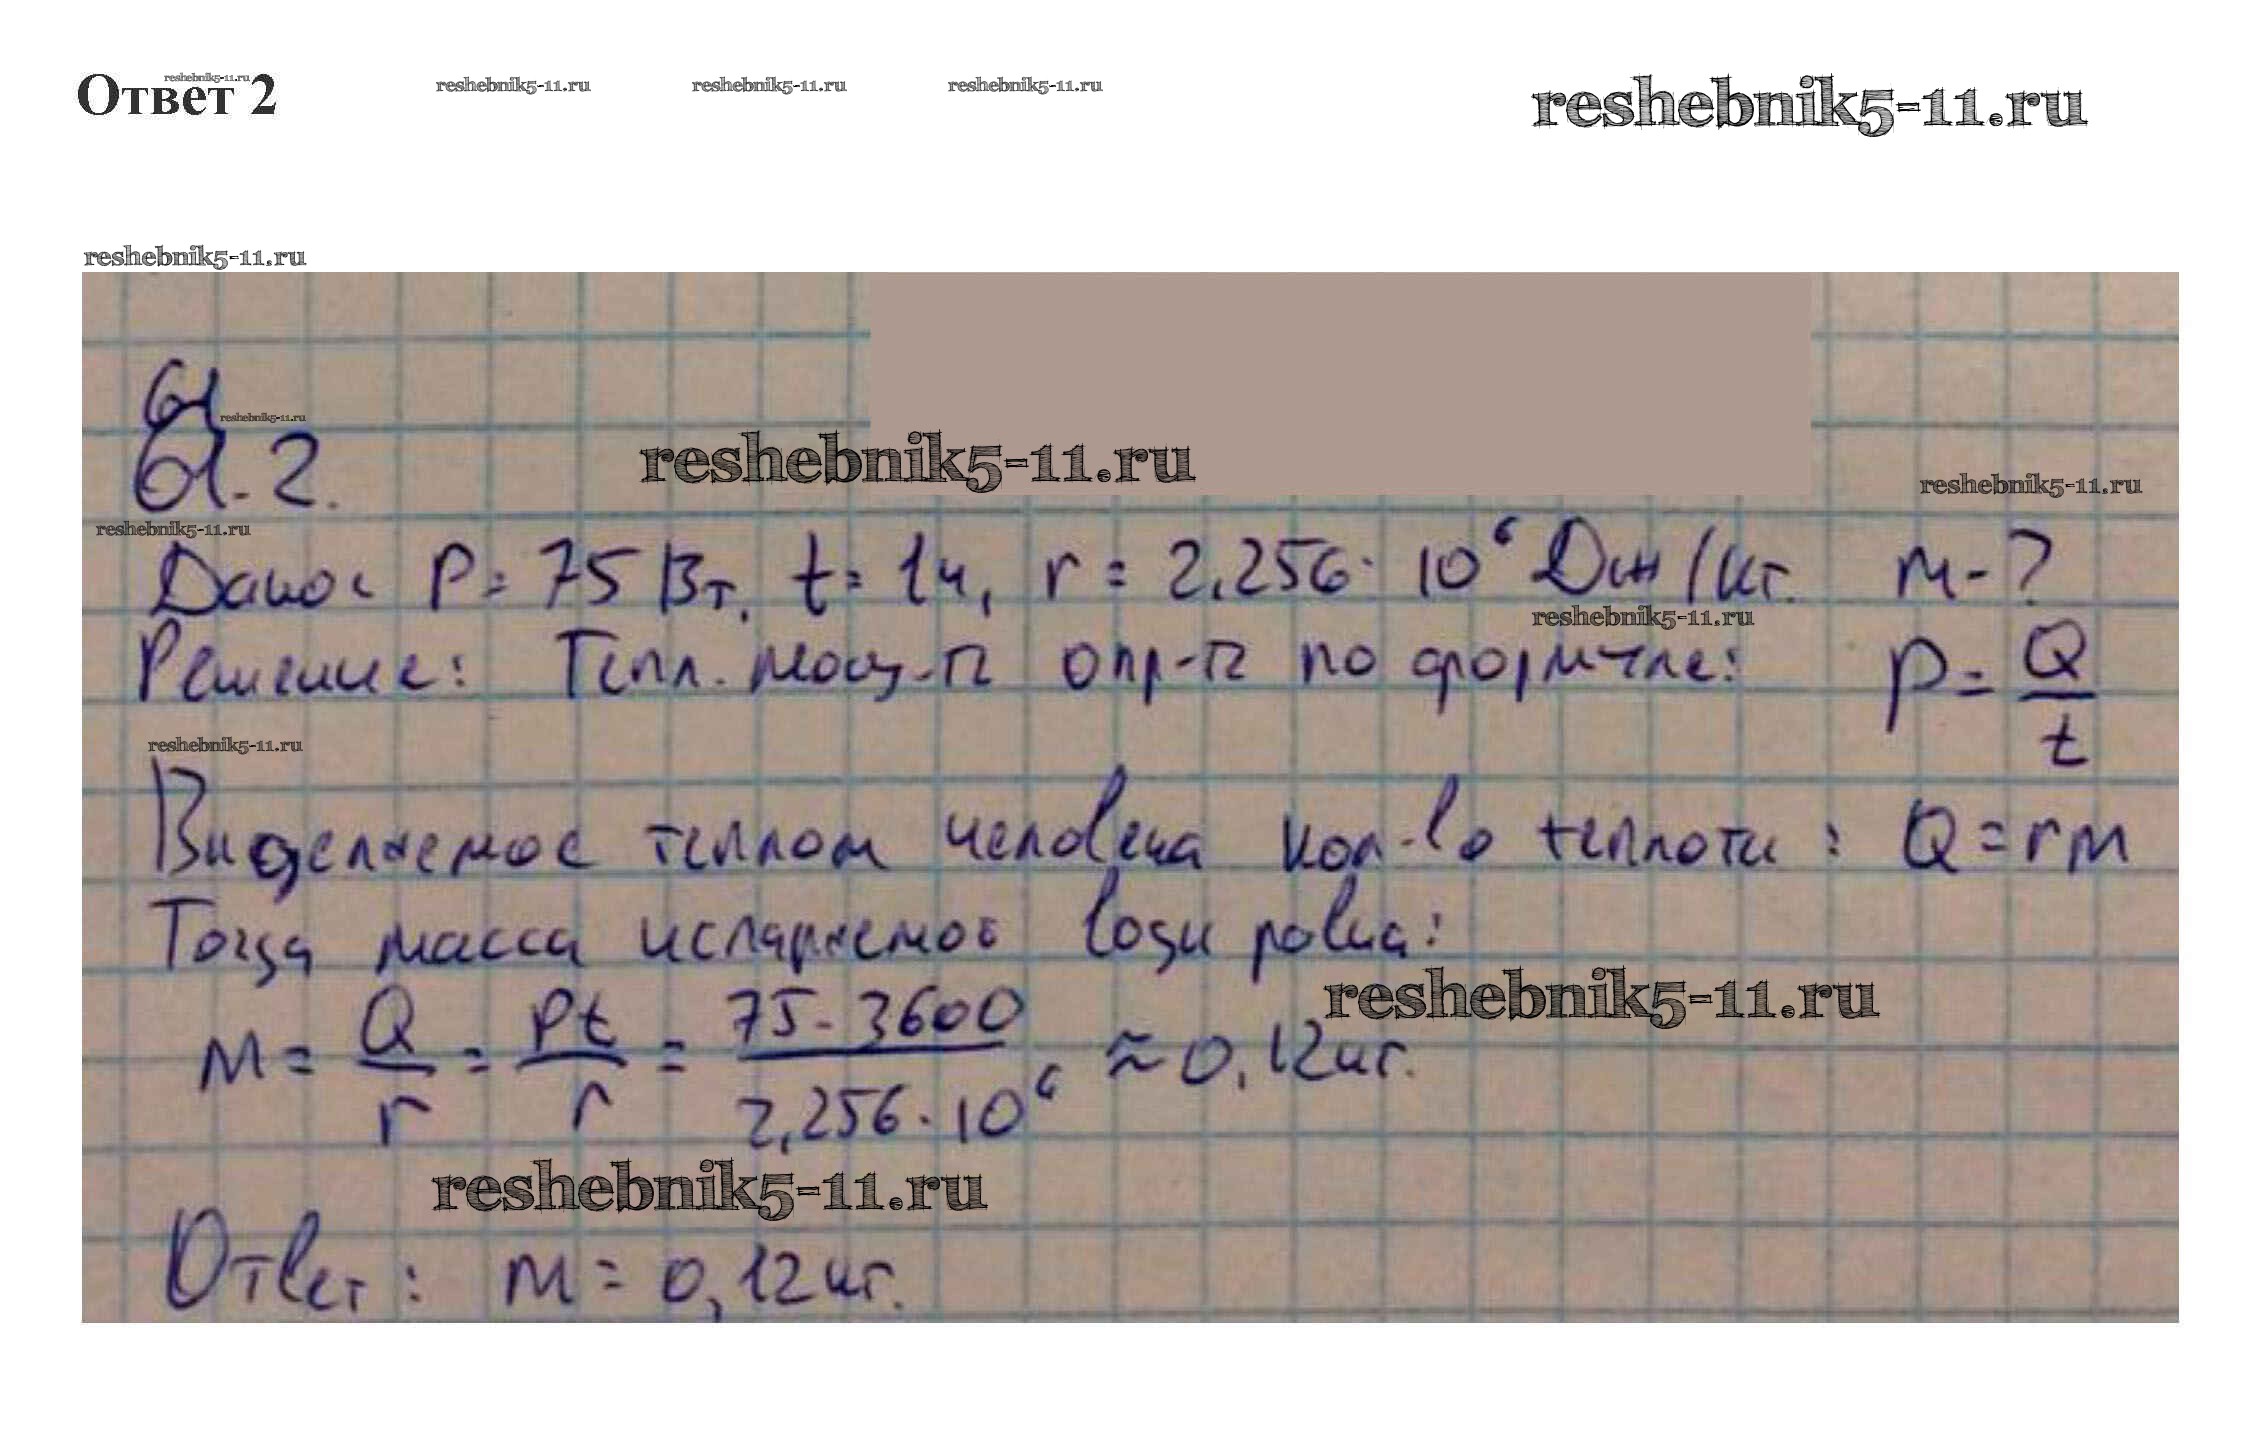 Ответ 2
reshebnik5-11.ru
reshebnik5-11.ru reshebnik5-11.ru reshebnik5-11.ru
reshebnik5-11.ru
reshebnik5-11.ru
61
reshebnik5-11.ru
61.2.
reshebnik5-11.ru
reshebnik5-11.ru
reshebnik5-11.ru
Дано: P = 75 Вт, t = 1ч, r = 2,256 · 10⁶ Дж/кг. m - ?
reshebnik5-11.ru
Решение: Тепл. мощ-ть опр-ть по формуле: P = Q/t
reshebnik5-11.ru
Выделяемое теплом человека кол-во теплоты: Q = rm
Тогда масса испаряемой воды равна:
reshebnik5-11.ru
m = Q/r = Pt/r = 75 · 3600 / 2,256 · 10⁶ ≈ 0,12 кг.
reshebnik5-11.ru
Ответ: m = 0,12 кг.